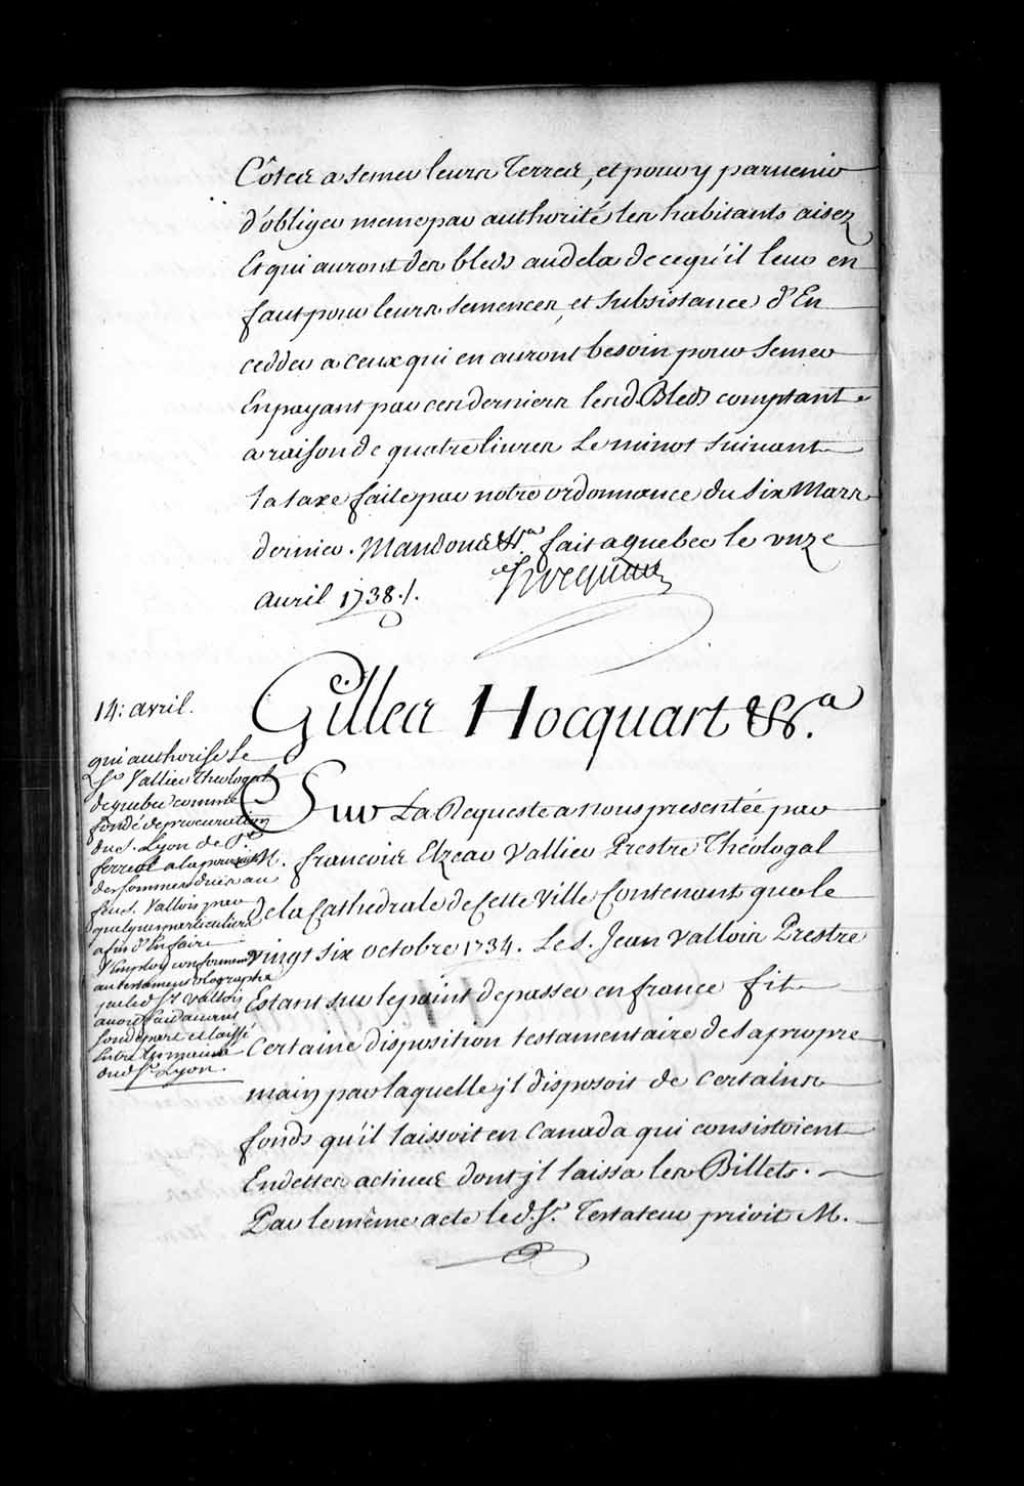 Côtes a semer leurs Terres, et pour y parvenir
d'obliger meme par authorité les habitants aisez
Et qui auront des bleds audela de ce qu'il leur en
faut pour leurs semences, et subsistance d'En
cedder a ceux qui en auront besoin pour semer
En payant par ces derniers lesd. Bleds comptant
a raison de quatre livres Le minot suivant
la taxe faite par notre ordonnance du six Mars
dernier. Mandons &ra. fait a quebec le unze
avril 1738./.
Hocquart
14: avril.
Gilles Hocquart &a.
qui authorise le
Sr. Vallier Theologal
de quebec comme
fondé de procuration
du s. Lyon de St.
ferreol a la poursuite
des sommes dues au
feu s. Vallois par
quelques particuliers
afin d'En faire
l'Employ conformement
au testament olographe
que led. Sr. Vallois
avoit fait avant
son depart et laissé
Entre les mains
dud. Sr. Lyon.
Sur La Requeste a nous presentée par
M. francois Elzear Vallier Prestre Théologal
de la Cathedrale de Cette Ville Contenant que le
vingt six octobre 1734. Le S. Jean Vallois Prestre
Estant sur le point de passer en france fit
Certaine disposition testamentaire de sa propre
main par laquelle jl disposoit de Certains
fonds qu'il laissoit en Canada qui consistoient
En dettes actives dont jl laissa les Billets.
Par le même acte led. Sr. Testateur prioit M.